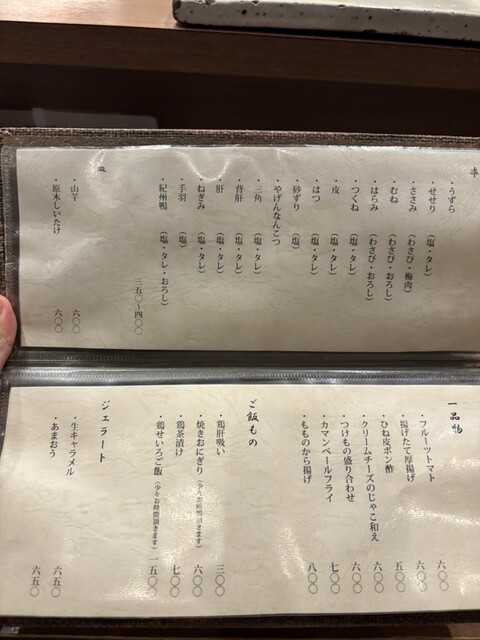 串
・うずら
・せせり（塩・タレ）
・ささみ（わさび・梅肉）
・むね（わさび・おろし）
・はらみ（わさび・おろし）
・つくね（塩・タレ）
・皮（塩・タレ）
・はつ（塩・タレ）
・砂ずり（塩）
・やげんなんこつ
・三角（塩・タレ）
・背肝（塩・タレ）
・肝（塩・タレ）
・ねぎみ（塩・タレ）
・手羽（塩）
・紀州鴨（塩・タレ・おろし）
三五〇〜四〇〇
・山芋 六〇〇
・原木しいたけ 六〇〇
一品物
・フルーツトマト 六〇〇
・揚げたて厚揚げ 六〇〇
・ひね皮ポン酢 五〇〇
・クリームチーズのじゃこ和え 六〇〇
・つけもの盛り合わせ 六〇〇
・カマンベールフライ 七〇〇
・もものから揚げ 八〇〇
ご飯もの
・鶏肝吸い 三〇〇
・焼きおにぎり（少々お時間頂きます） 六〇〇
・鶏茶漬け 七〇〇
・鶏せいろご飯（少々お時間頂きます） 一五〇〇
ジェラート
・生キャラメル 六五〇
・あまおう 六五〇